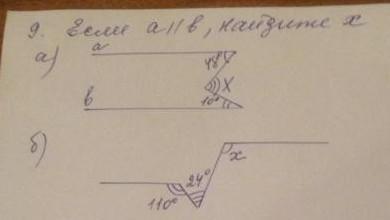 9. Если a || в, найдите x
а) a
48°
x
в 10°
б)
x
24°
110°